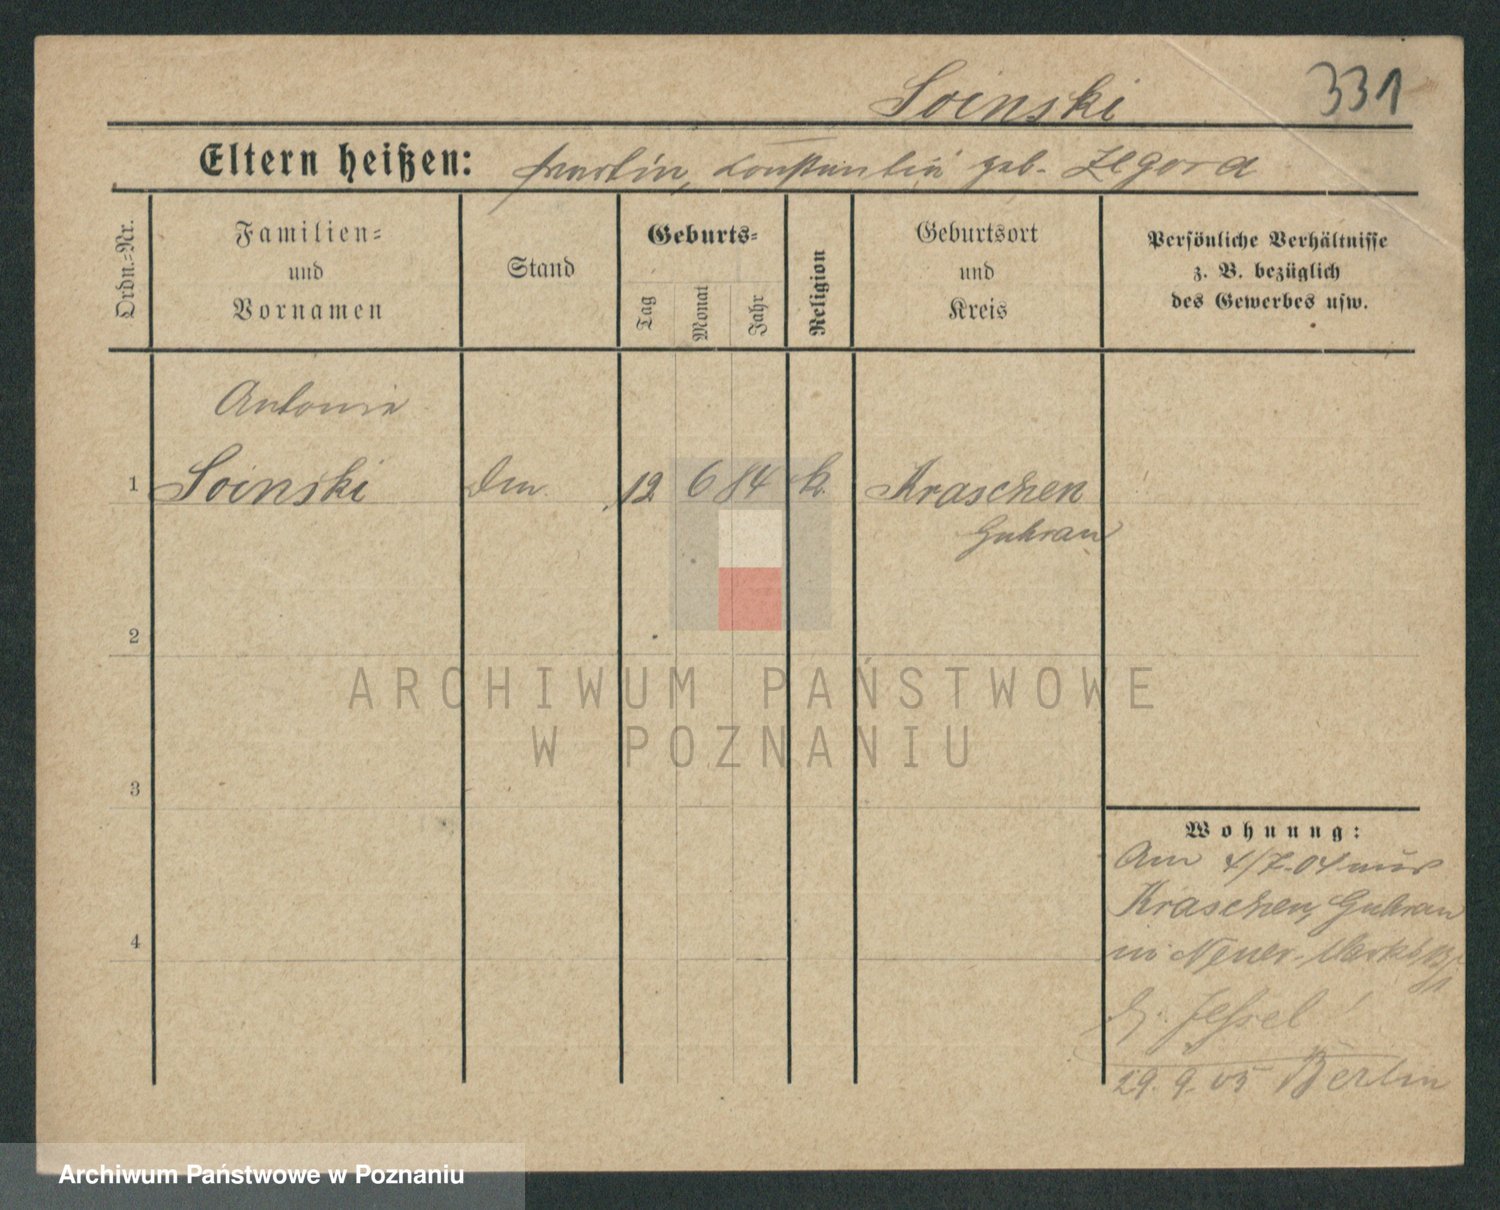 331
Soinski
Eltern heißen: Martin, Konstantin geb. Zegora
Ordn.=Nr.
Familien=
und
Vornamen
Stand
Geburts=
Tag
Monat
Jahr
Religion
Geburtsort
und
Kreis
Persönliche Verhältnisse
z. B. bezüglich
des Gewerbes usw.
Antonie
1 Soinski 12 6 84 k. Kraschen
Guhrau
2
3
4
Wohnung:
Am 4/7.04 aus
Kraschen, Guhrau
Neuer-Markt
Jessel
29. 9. 05 Berlin
ARCHIWUM PAŃSTWOWE
W POZNANIU
Archiwum Państwowe w Poznaniu